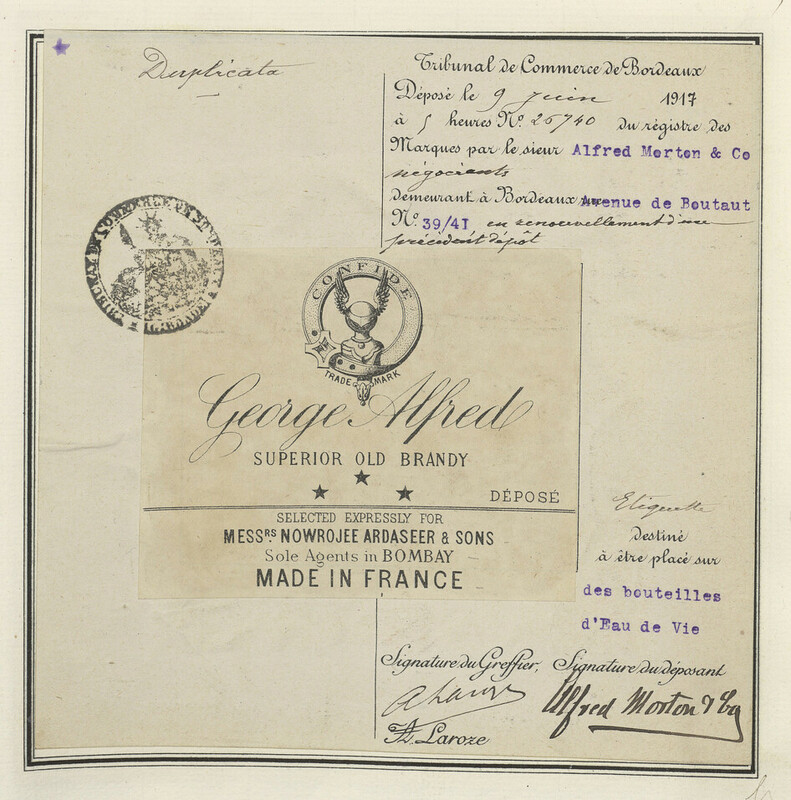 Duplicata
Tribunal de Commerce de Bordeaux
Déposé le 9 juin 1917
à 5 heures No. 26740 du régistre des
Marques par le sieur Alfred Morton & Co
négociants
demeurant à Bordeaux Avenue de Boutaut
No. 39/41 en renouvellement d'un
précédent dépôt
CONFIDE
TRADE MARK
George Alfred
SUPERIOR OLD BRANDY
DÉPOSÉ
SELECTED EXPRESSLY FOR
MESSRS NOWROJEE ARDASEER & SONS
Sole Agents in BOMBAY
MADE IN FRANCE
Etiquette
destiné
à être placé sur
des bouteilles
d'Eau de Vie
Signature du Greffier, Signature du déposant
Alfred Morton & Co
A. Laroze